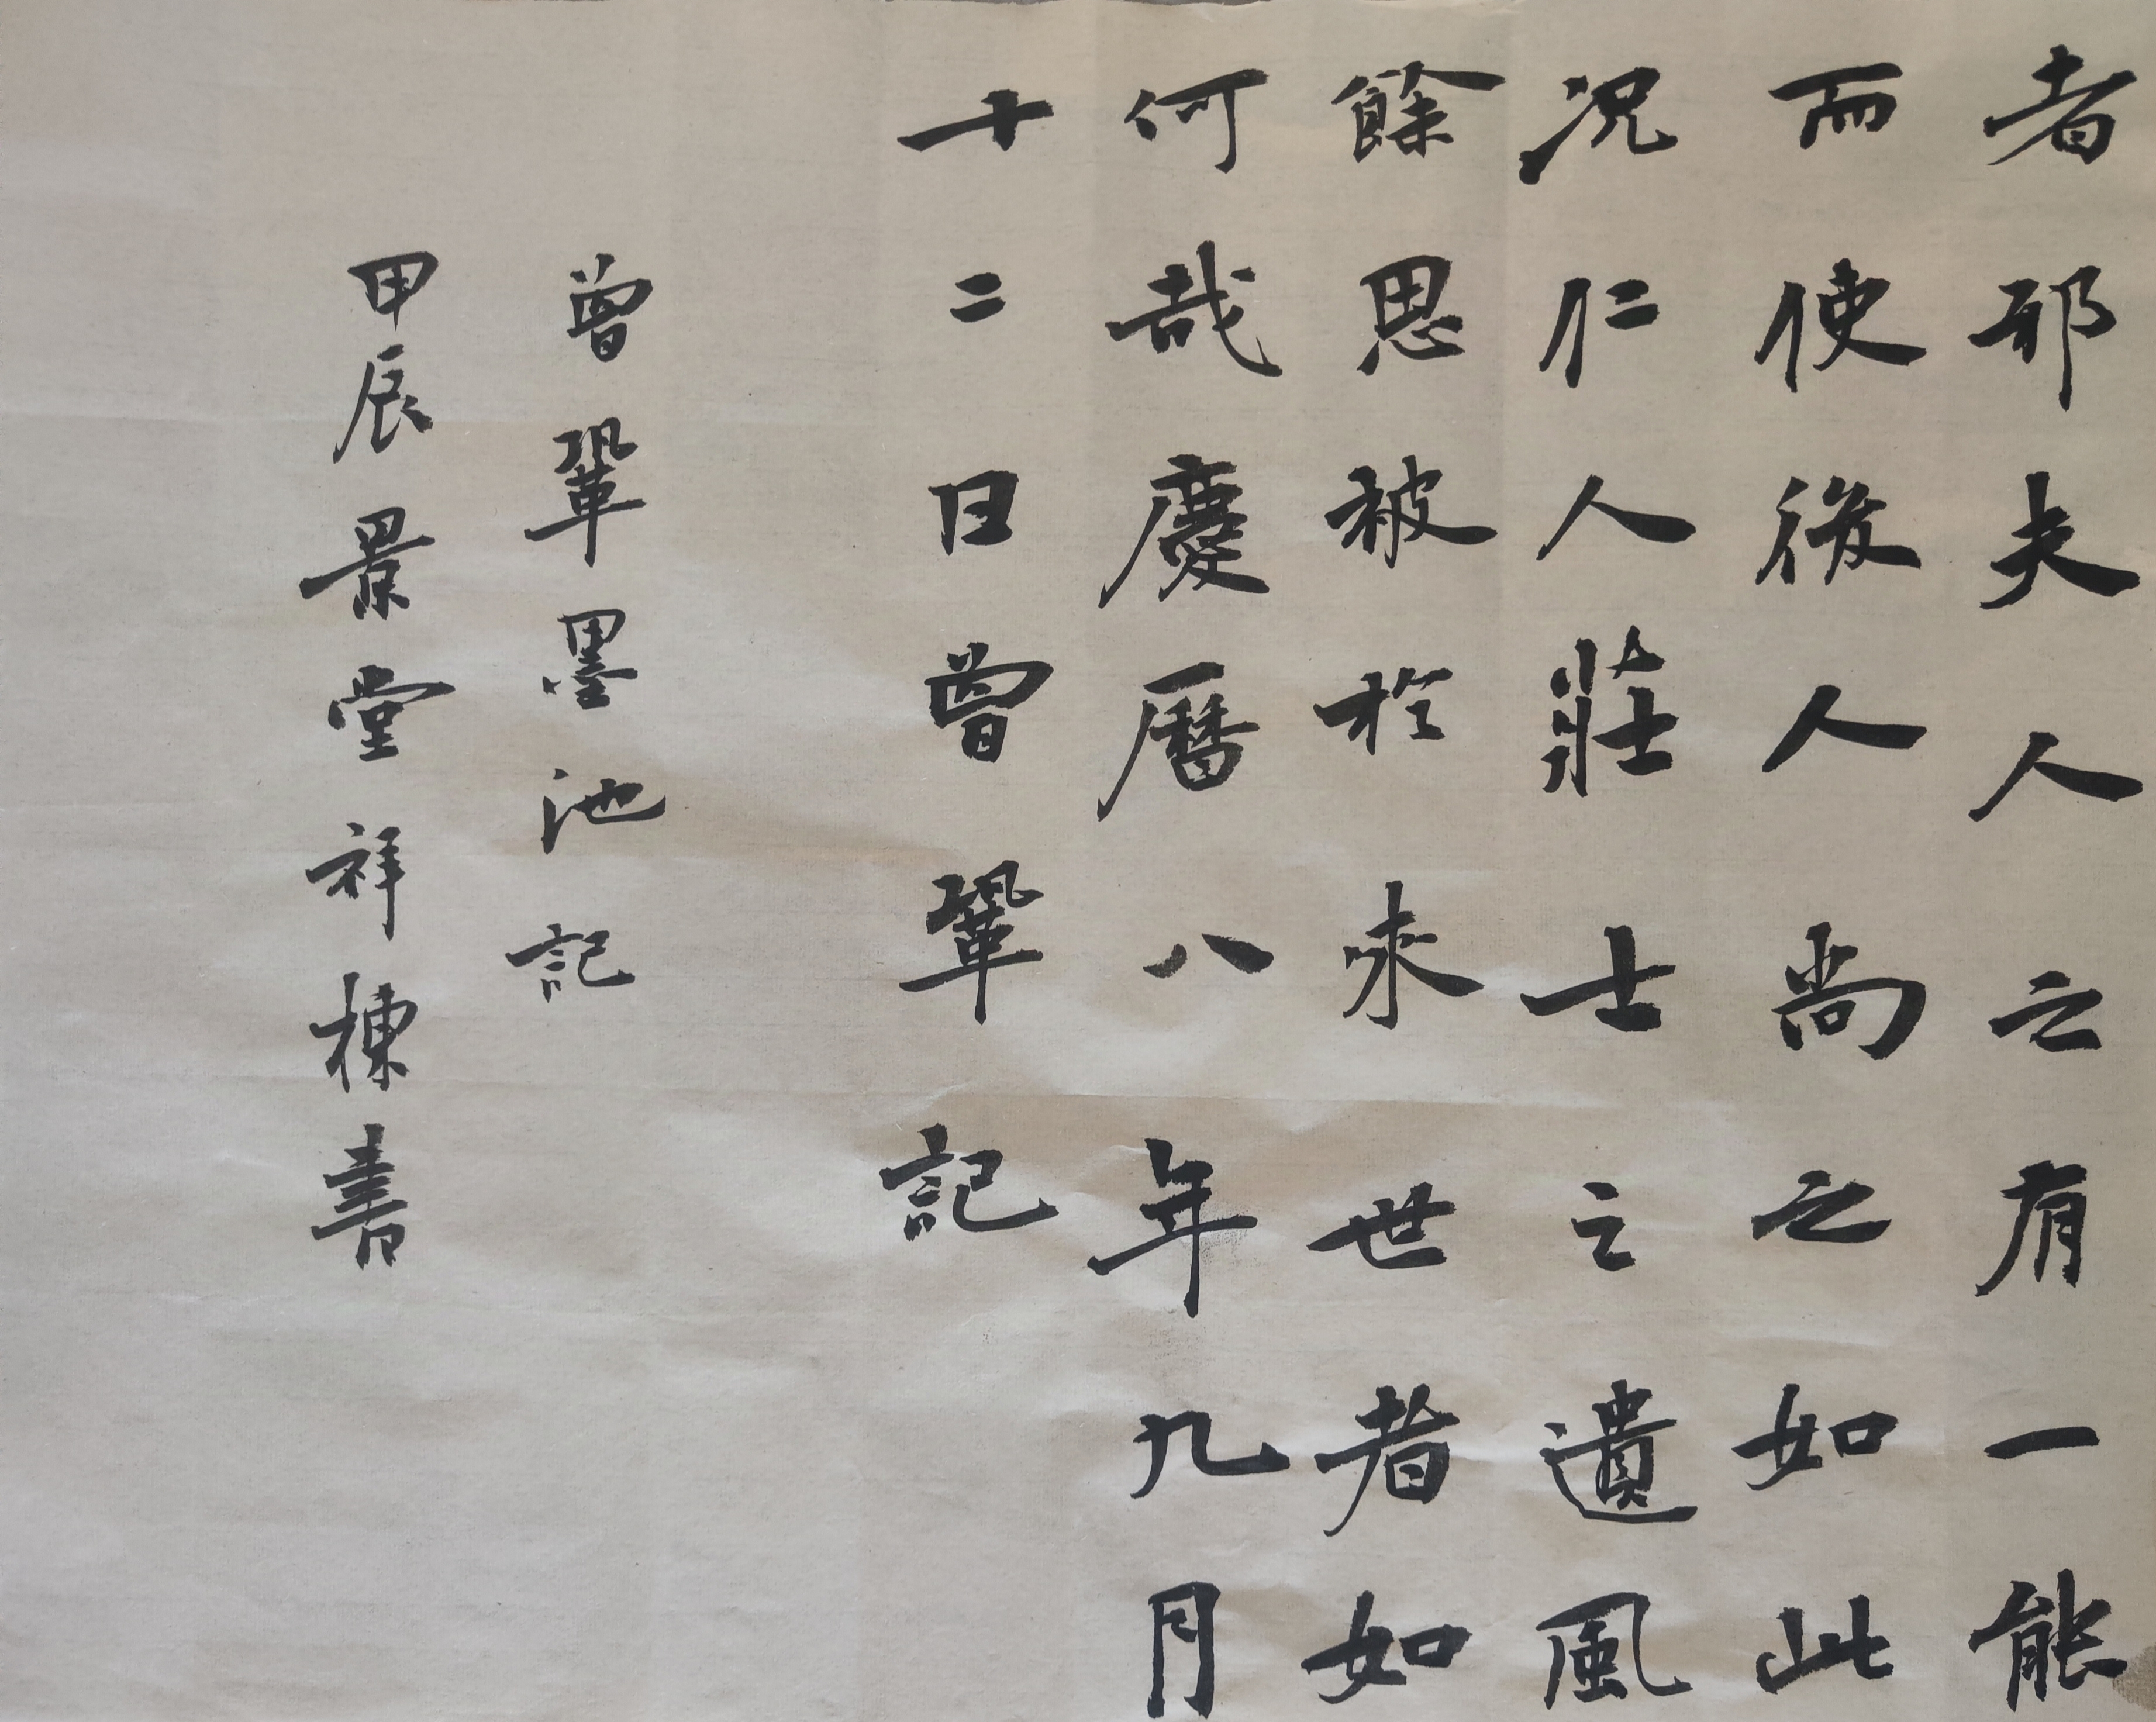 者邪夫人之有一能
而使後人尚之如此
況仁人莊士之遺風
餘思被於來世者如
何哉慶曆八年九月
十二日曾鞏記
曾鞏墨池記
甲辰景堂祥棟書